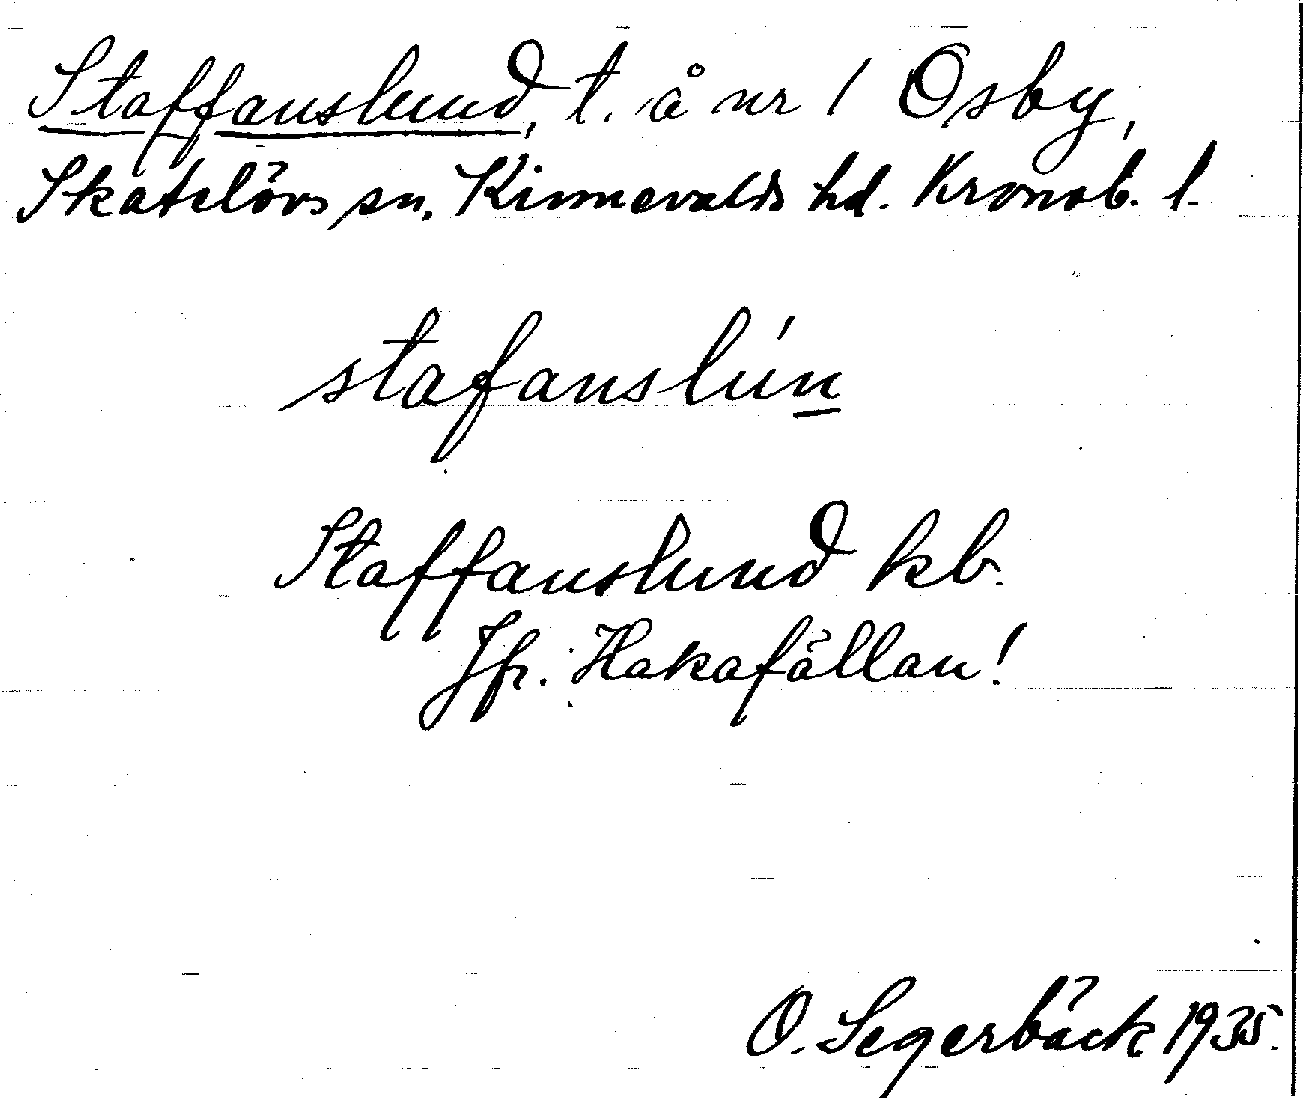 Staffanslund, t. å nr 1 Osby,
Skatelövs sn. Kinnevalds hd. Kronob. l.
stafanslún
Staffanslund kb.
Jfr. Hakafällan!
O. Segerbäck 1935.